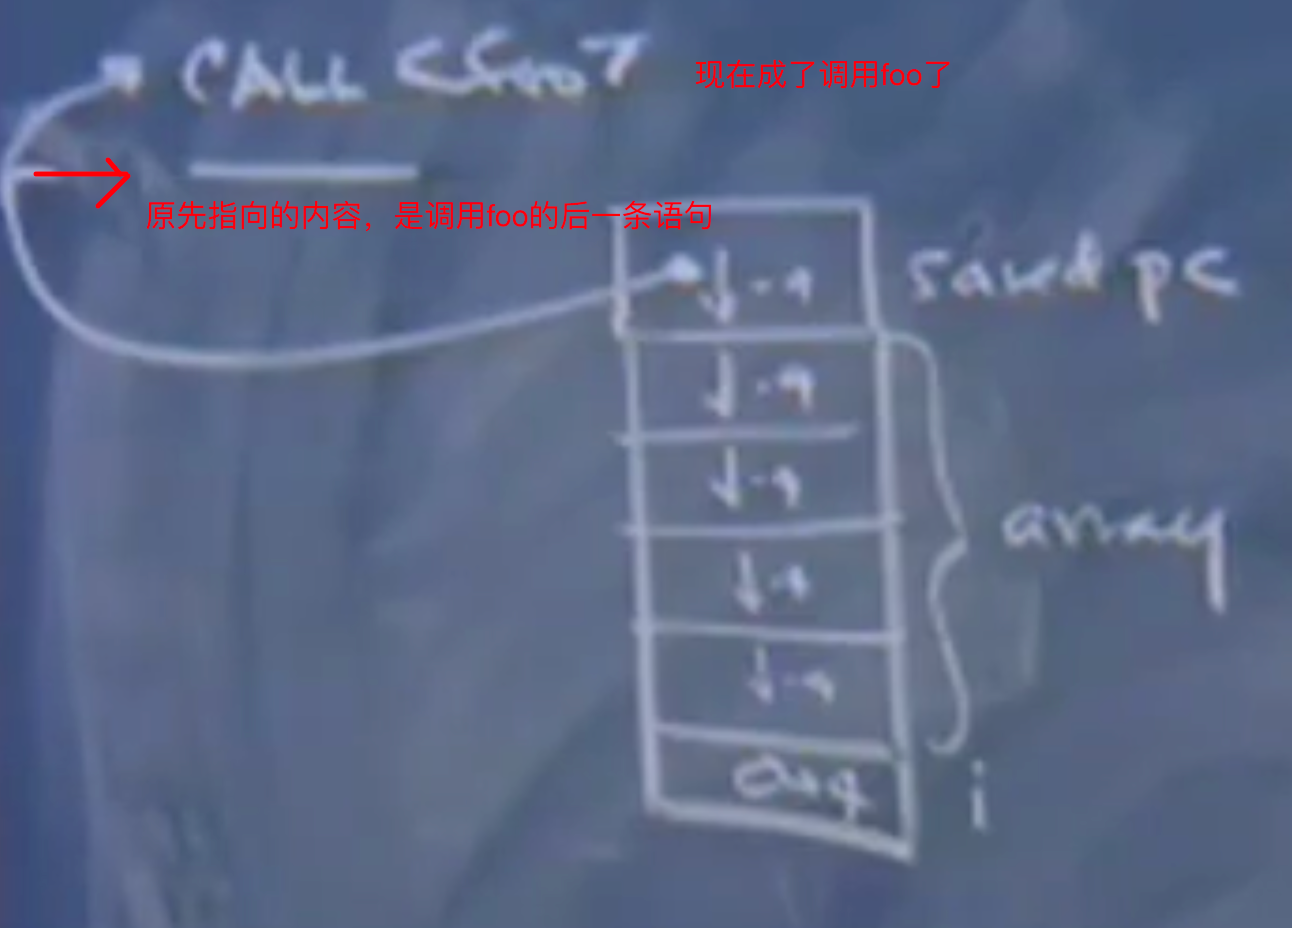 CALL <foo> 现在成了调用foo了
原先指向的内容，是调用foo的后一条语句
↓-4 saved pc
↓-4
↓-4
array
↓-4
↓-4
i